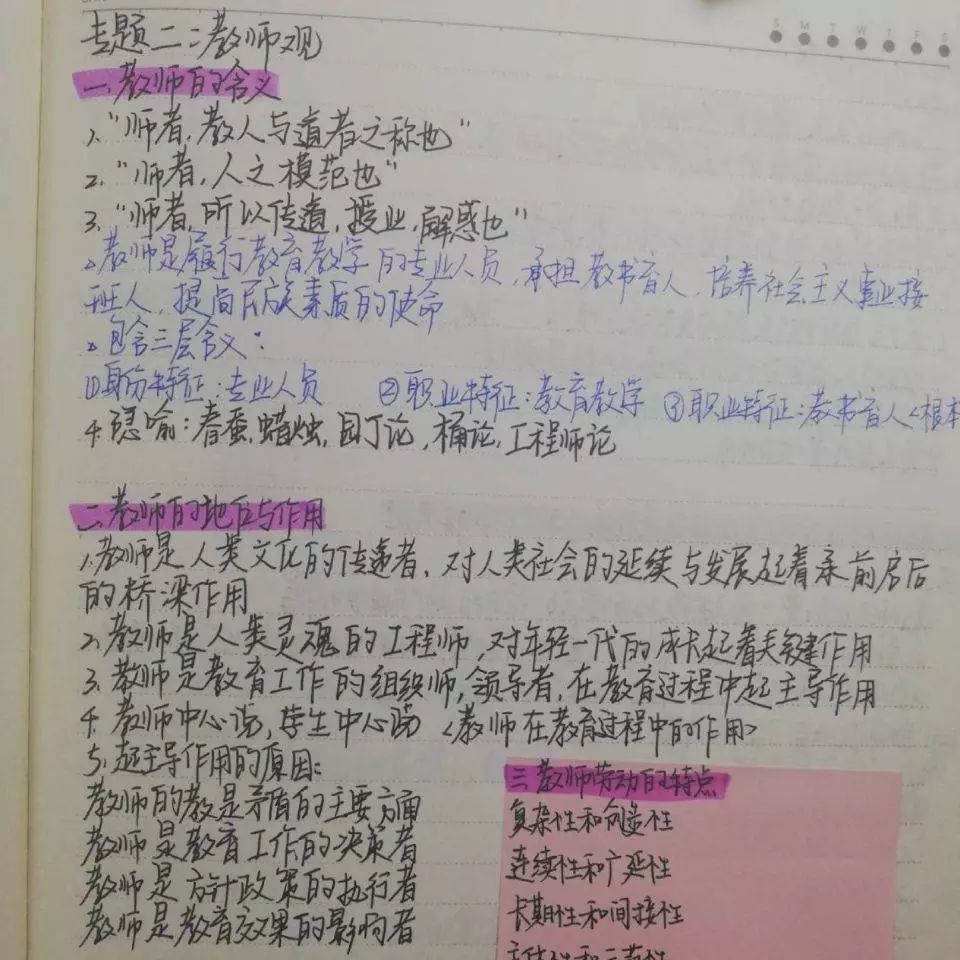 S M T W T F S
专题二:教师观
一.教师的含义
1."师者,教人与道者之称也"
2."师者,人之模范也"
3."师者,所以传道,授业,解惑也"
教师是履行教育教学的专业人员,承担教书育人,培养社会主义事业接
班人,提高民族素质的使命
包含三层含义:
①身份特征:专业人员 ②职业特征:教育教学 ③职业特征:教书育人<根本
4.隐喻:春蚕,蜡烛,园丁论,桶论,工程师论
二.教师的地位与作用
1.教师是人类文化的传递者,对人类社会的延续与发展起着承前启后
的桥梁作用
2.教师是人类灵魂的工程师,对年轻一代的成长起着关键作用
3.教师是教育工作的组织师,领导者,在教育过程中起主导作用
4.教师中心说,学生中心说<教师在教育过程中的作用>
5.起主导作用的原因:
教师的教是矛盾的主要方面
教师是教育工作的决策者
教师是方针政策的执行者
教师是教育效果的影响者
三.教师劳动的特点
复杂性和创造性
连续性和广延性
长期性和间接性